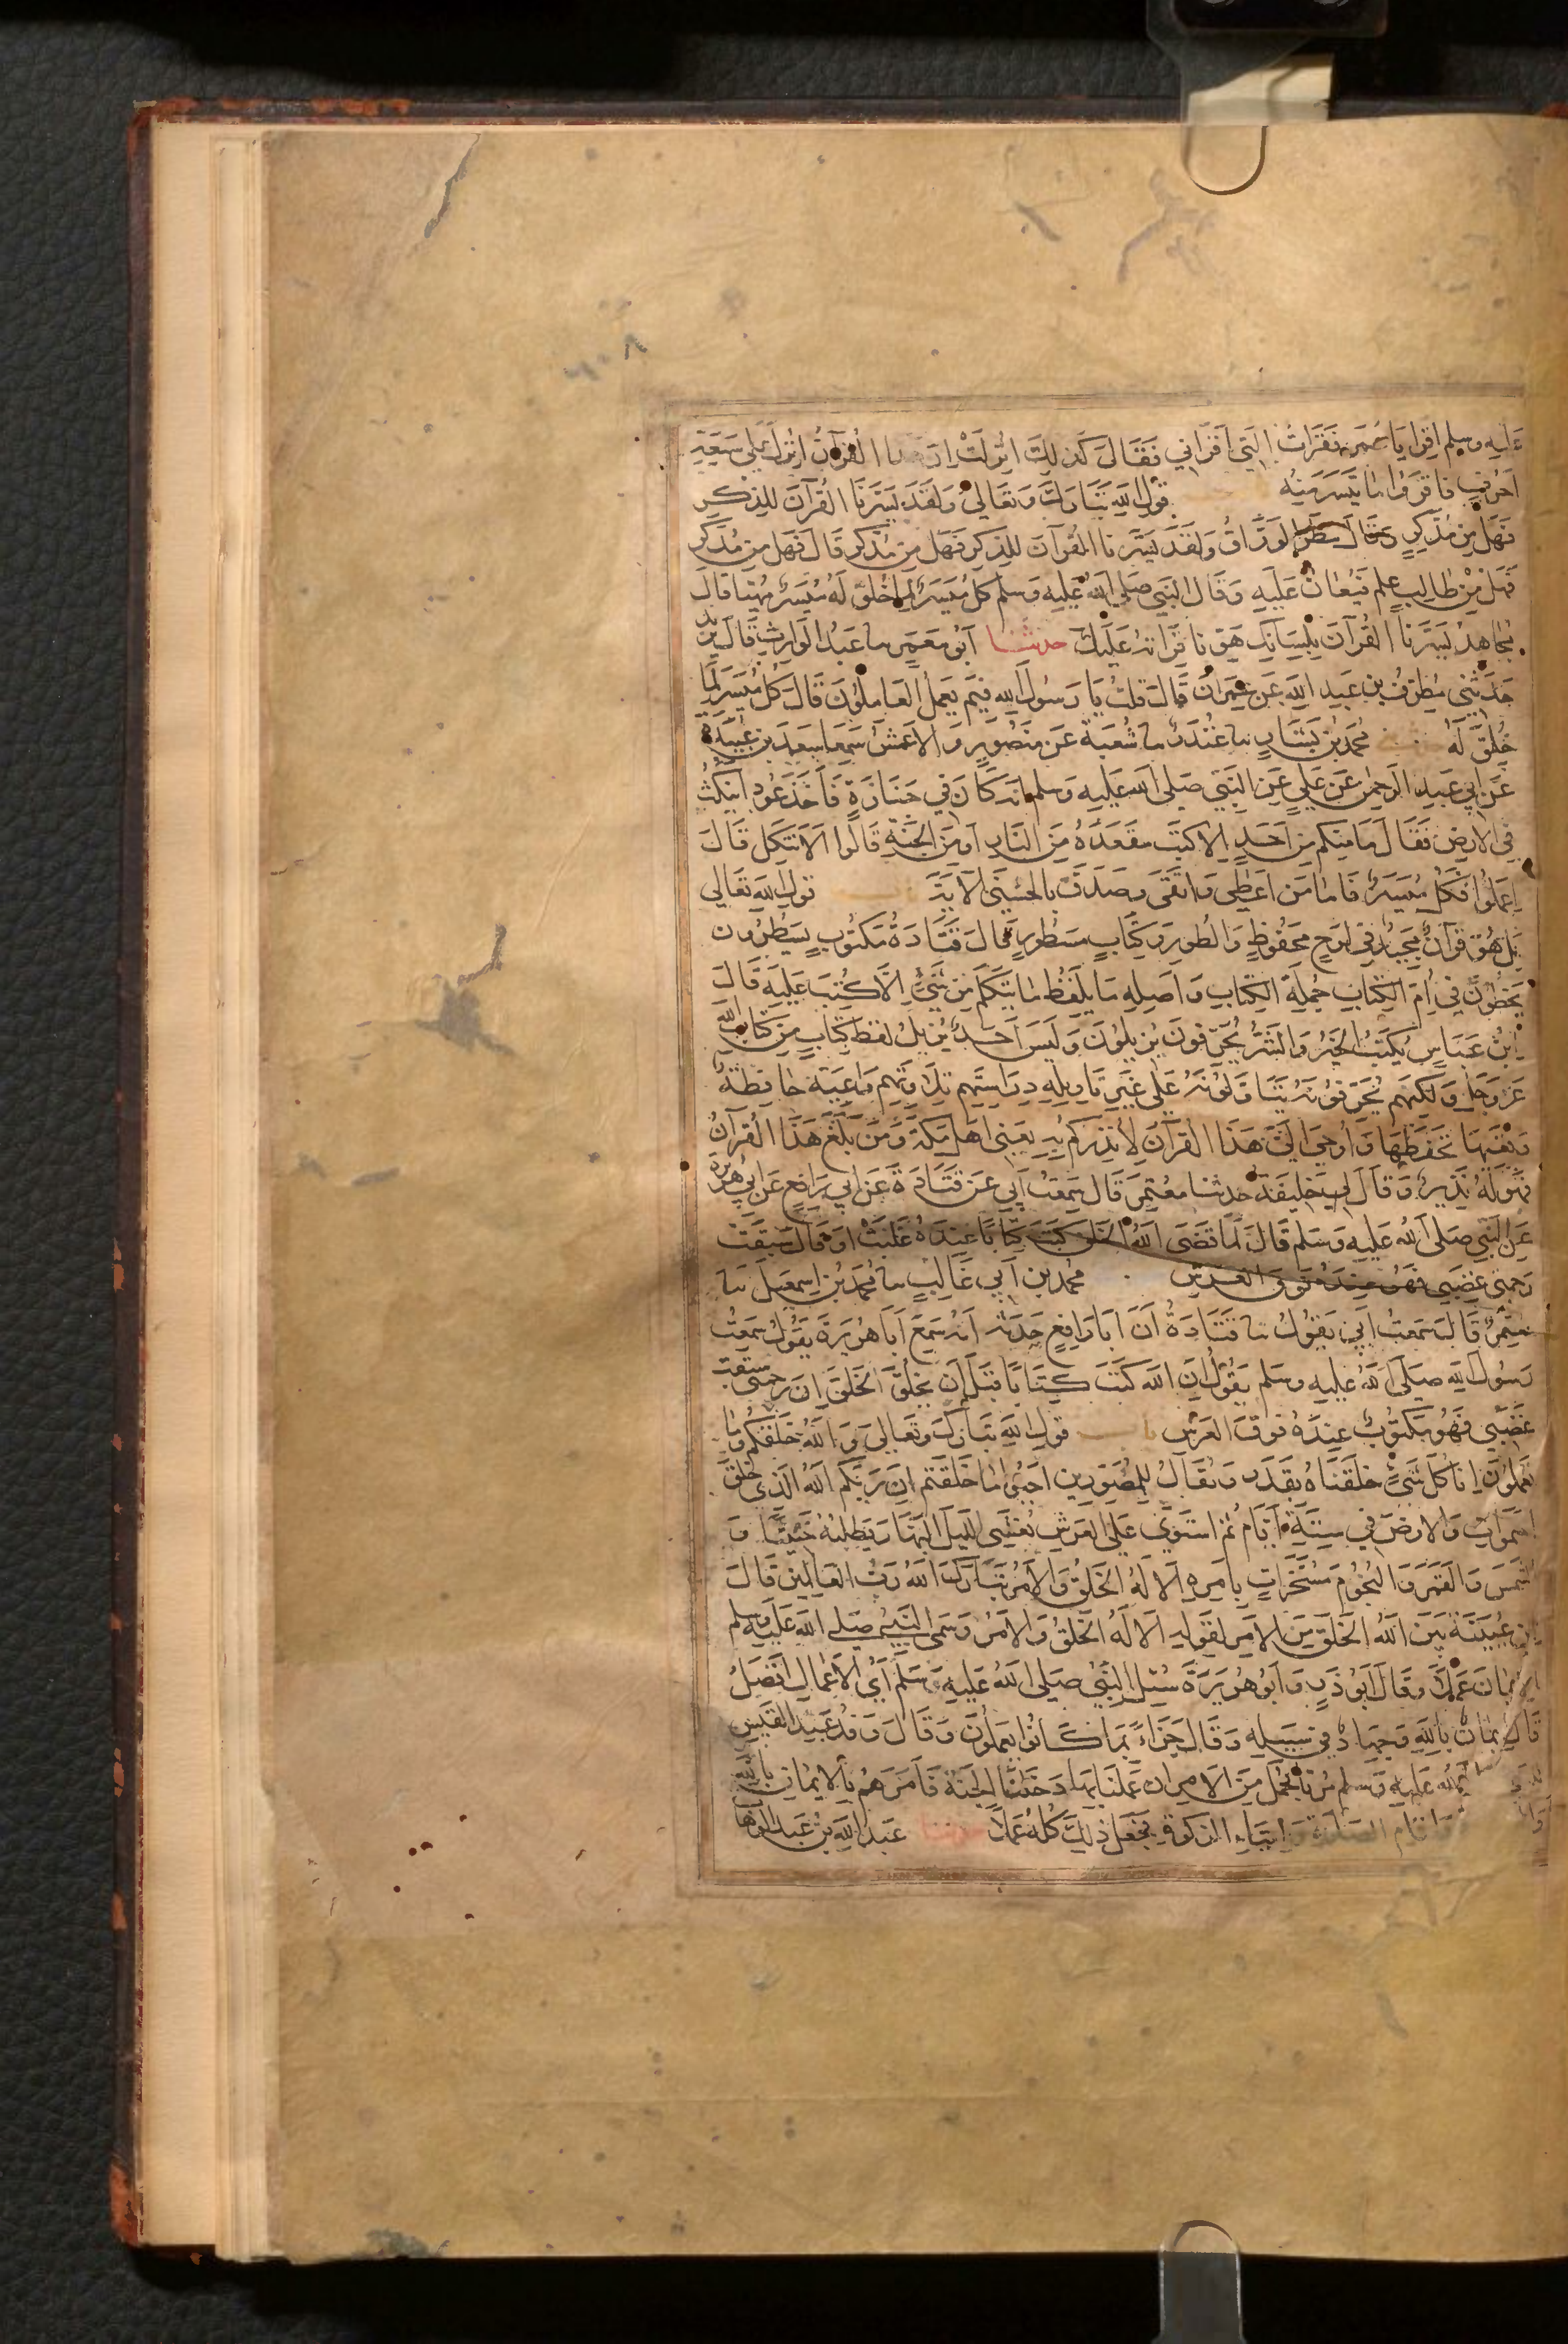 عليه وسلم اقرا يا عمر فقرات التي اقراني فقال كذلك انزلت ان هذا القرآن انزل على سبعة
احرف فاقروا ما تيسر منه قول الله تبارك وتعالى ولقد يسرنا القرآن للذكر
فهل من مدكر وقال مطر الوراق ولقد يسرنا القرآن للذكر فهل من مدكر قال فهل من مدكر
فهل من طالب علم فيعان عليه وقال النبي صلى الله عليه وسلم كل ميسر لما خلق له ميسر مهيا قال
مجاهد يسرنا القرآن بلسانك هونا قراته عليك حدثنا ابو معمر سا عبد الوارث قال يزيد
حدثني مطرف بن عبد الله عن عمران قال قلت يا رسول الله فيم يعمل العاملون قال كل ميسر لما
خلق له محمد بن بشار سا غندر سا شعبة عن منصور والاعمش سمعا سعد بن عبيدة
عن ابي عبد الرحمن عن علي عن النبي صلى الله عليه وسلم انه كان في جنازة فاخذ عودا ينكث
في الارض فقال ما منكم من احد الا كتب مقعده من النار او من الجنة قالوا الا نتكل قال
اعملوا فكل ميسر فاما من اعطى واتقى وصدق بالحسنى الاية قول الله تعالى
بل هو قرآن مجيد في لوح محفوظ والطور وكتاب مسطور قال قتادة مكتوب يسطرون
يخطون في ام الكتاب جملة الكتاب واصله ما يلفظ ما يتكلم من شيء الا كتب عليه قال
ابن عباس يكتب الخير والشر يحرفون يزيلون وليس احد يزيل لفظ كتاب من كتاب الله
عز وجل ولكنهم يحرفونه يتاولونه على غير تاويله دراستهم تلاوتهم واعية حافظة
وتعيها تحفظها واوحي الي هذا القرآن لانذركم به يعني اهل مكة ومن بلغ هذا القرآن
فهو له نذير وقال لي خليفة حدثنا معتمر قال سمعت ابي عن قتادة عن ابي رافع عن ابي هريرة
عن النبي صلى الله عليه وسلم قال لما قضى الله الخلق كتب كتابا عنده غلبت او قال سبقت
رحمتي غضبي فهو عنده فوق العرش محمد بن ابي غالب سا محمد بن اسمعيل سا
معتمر قال سمعت ابي يقول سا قتادة ان ابا رافع حدثه انه سمع ابا هريرة يقول سمعت
رسول الله صلى الله عليه وسلم يقول ان الله كتب كتابا قبل ان يخلق الخلق ان رحمتي سبقت
غضبي فهو مكتوب عنده فوق العرش باب قول الله تبارك وتعالى والله خلقكم وما
تعملون انا كل شيء خلقناه بقدر ويقال للمصورين احيوا ما خلقتم ان ربكم الله الذي خلق
السموات والارض في ستة ايام ثم استوى على العرش يغشي الليل النهار يطلبه حثيثا و
الشمس والقمر والنجوم مسخرات بامره الا له الخلق والامر تبارك الله رب العالمين قال
ابن عيينة بين الله الخلق من الامر لقوله الا له الخلق والامر وسمى النبي صلى الله عليه وسلم
الايمان عملا وقال ابو ذر وابو هريرة سئل النبي صلى الله عليه وسلم اي الاعمال افضل
قال ايمان بالله وجهاد في سبيله وقال جزاء بما كانوا يعملون وقال وفد عبد القيس
الله عليه وسلم مرنا بجمل من الامر ان عملنا بها دخلنا الجنة فامرهم بالايمان بالله
واقام الصلوة وايتاء الزكوة فجعل ذلك كله عملا حدثنا عبد الله بن عبد الوهاب